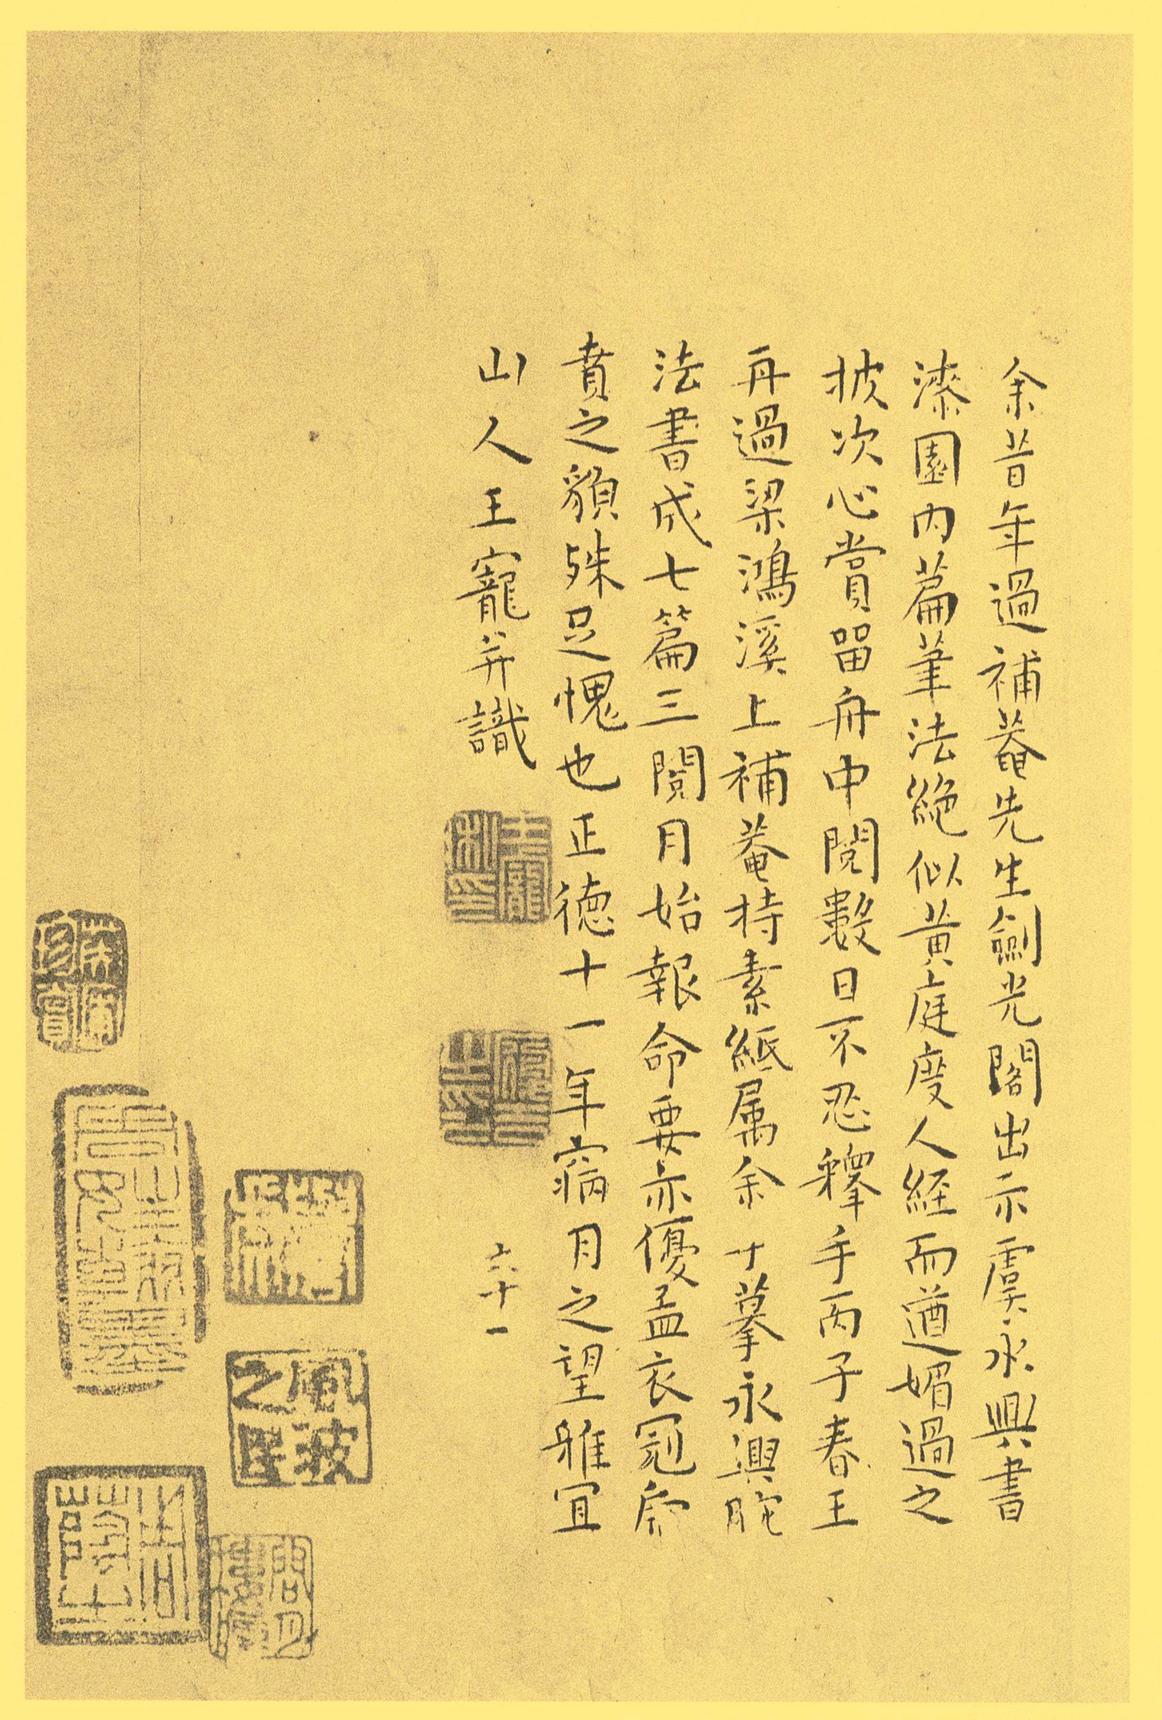 余昔年過補菴先生劍光閣出示虞永興書
漆園內篇筆法絕似黃庭度人經而遒媚過之
披次心賞留舟中閱數日不忍釋手丙子春王
再過梁鴻溪上補菴持素紙属余寸摹永興
法書成七篇三閱月始報命要亦優孟衣冠
賁之貌殊足愧也正德十一年病月之望雅宜
山人王寵并識
六十一
王寵私印
風波之民